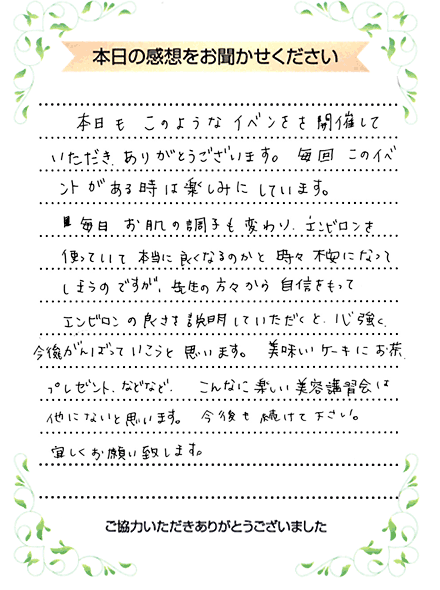 本日の感想をお聞かせください
本日も このような イベントを 開催して
いただき、ありがとうございます。 毎回 このイベ
ントがある時は楽しみにしています。
毎日 お肌の調子も 変わり、エンビロンを
使っていて 本当に良くなるのかと 時々 不安になって
しまうのですが、先生の方々から 自信をもって
エンビロンの良さを 説明していただくと、心強く、
今後がんばっていこうと 思います。 美味いケーキに お茶、
プレゼント、などなど、 こんなに楽しい 美容講習会は
他にないと思います。 今後も 続けて下さい。
宜しくお願い致します。
ご協力いただきありがとうございました